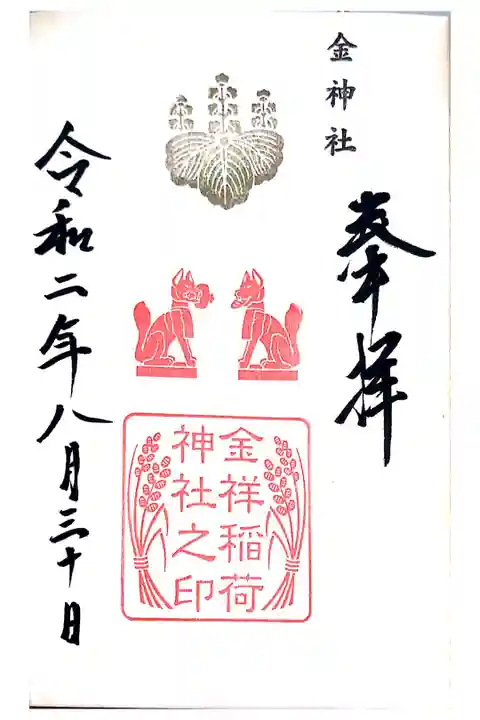 金神社
奉拝
金祥稲荷
神社之印
令和二年八月三十日